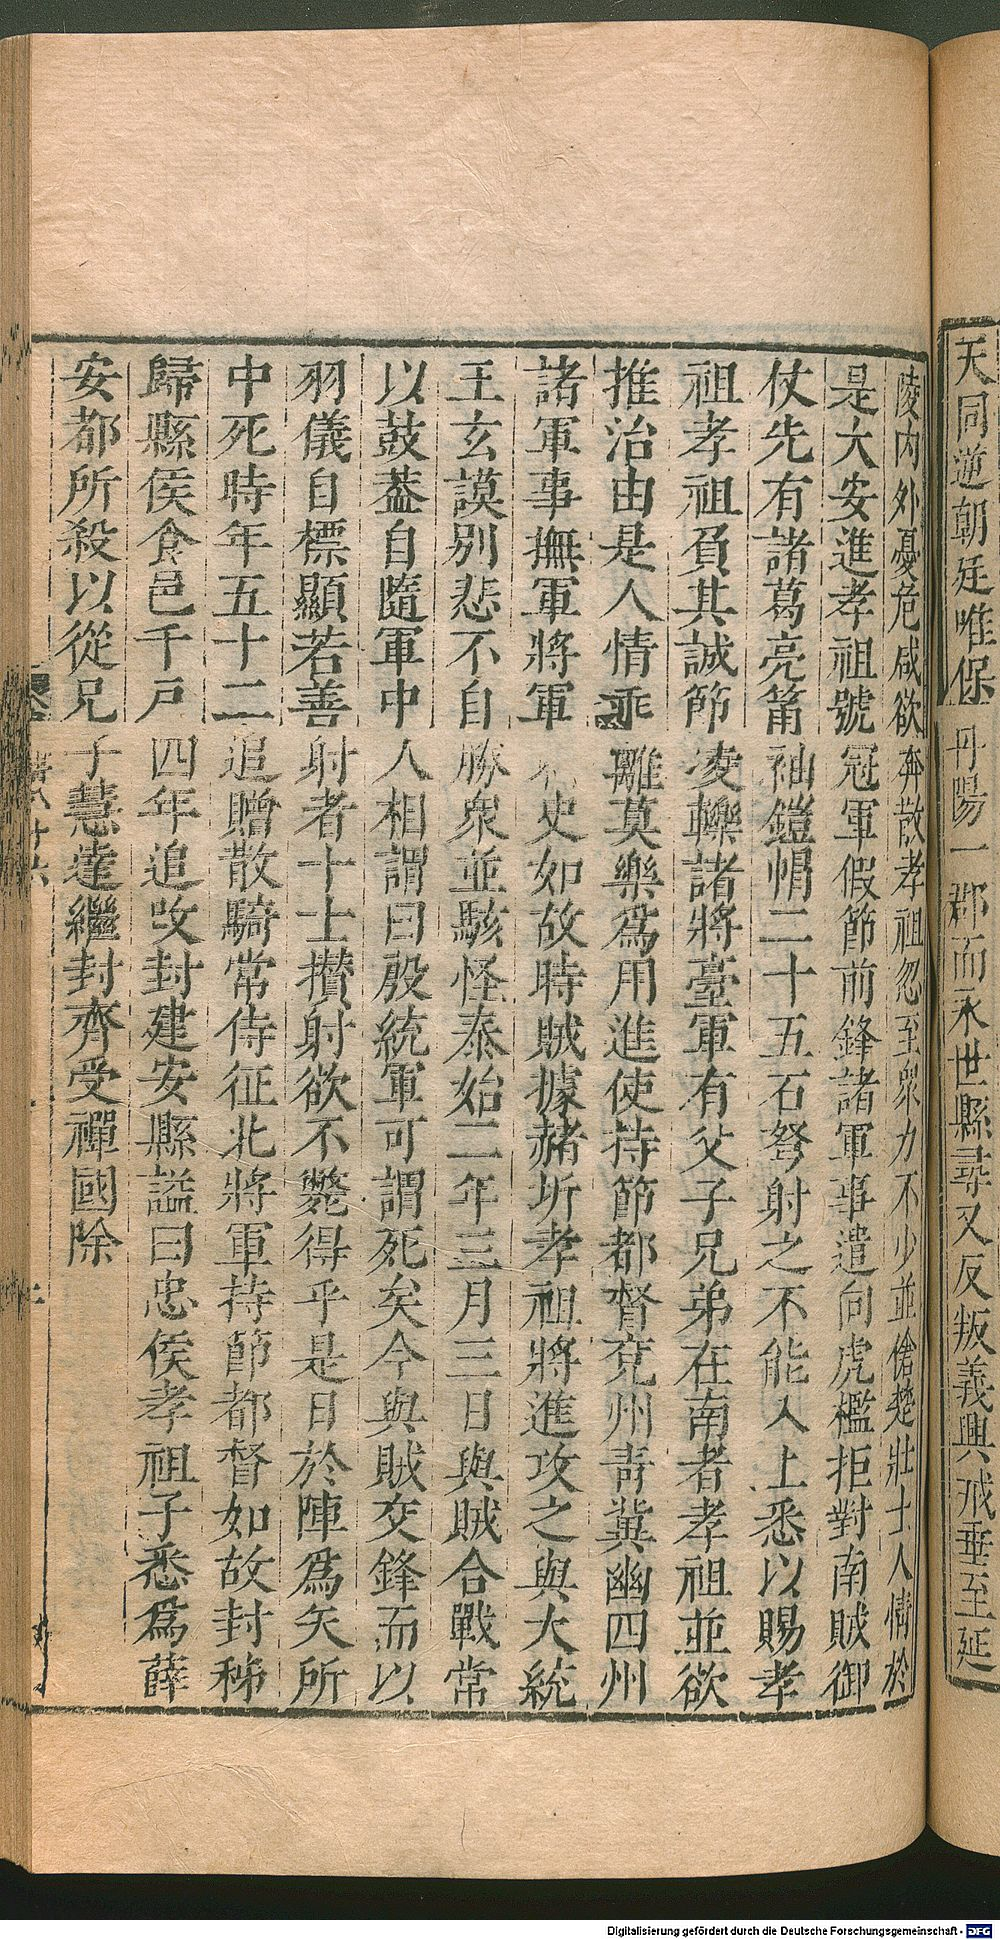 天同逆朝廷唯保丹陽一郡而永世縣尋又反叛義興戒垂至延
陵內外憂危咸欲奔散孝祖忽至衆力不少並傖楚壯士人情於
是大安進孝祖號冠軍假節前鋒諸軍事遣向虎檻拒對南賊御
仗先有諸葛亮筩袖鎧帽二十五石弩射之不能入上悉以賜孝
祖孝祖負其誠節凌轢諸將臺軍有父子兄弟在南者孝祖並欲
推治由是人情乖離莫樂爲用進使持節都督兗州青冀幽四州
諸軍事撫軍將軍史如故時賊據赭圻孝祖將進攻之與大統
王玄謨別悲不自勝衆並駭怪泰始二年三月三日與賊合戰常
以鼓蓋自隨軍中人相謂曰殷統軍可謂死矣今與賊交鋒而以
羽儀自標顯若善射者十士攅射欲不斃得乎是日於陣爲矢所
中死時年五十二追贈散騎常侍征北將軍持節都督如故封秭
歸縣侯食邑千戸四年追改封建安縣謚曰忠侯孝祖子悉爲薛
安都所殺以從兄子慧達繼封齊受禪國除
Digitalisierung gefördert durch die Deutsche Forschungsgemeinschaft - DFG